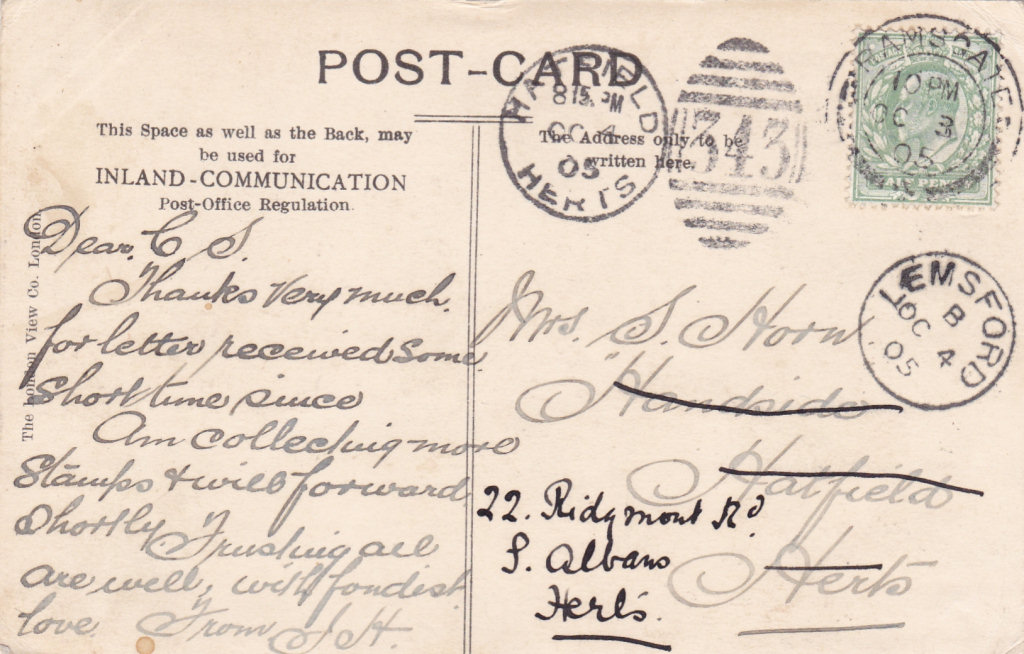 POST-CARD
This Space as well as the Back, may
be used for
INLAND-COMMUNICATION
Post-Office Regulation.
The Address only to be
written here.
The London View Co. London
HATFIELD
8 15 PM
OC 4
05
HERTS
343
RAMSGATE
10 PM
OC 3
05
LEMSFORD
B
OC 4
05
Dear C S.
Thanks Very much
for letter received Some
Short time since
Am collecting more
Stamps & will forward
Shortly Trusting all
are well, with fondest
love From S H.
Mrs. S. Horn
Handside
Hatfield
Herts
22. Ridgmont Rd
S. Albans
Herts